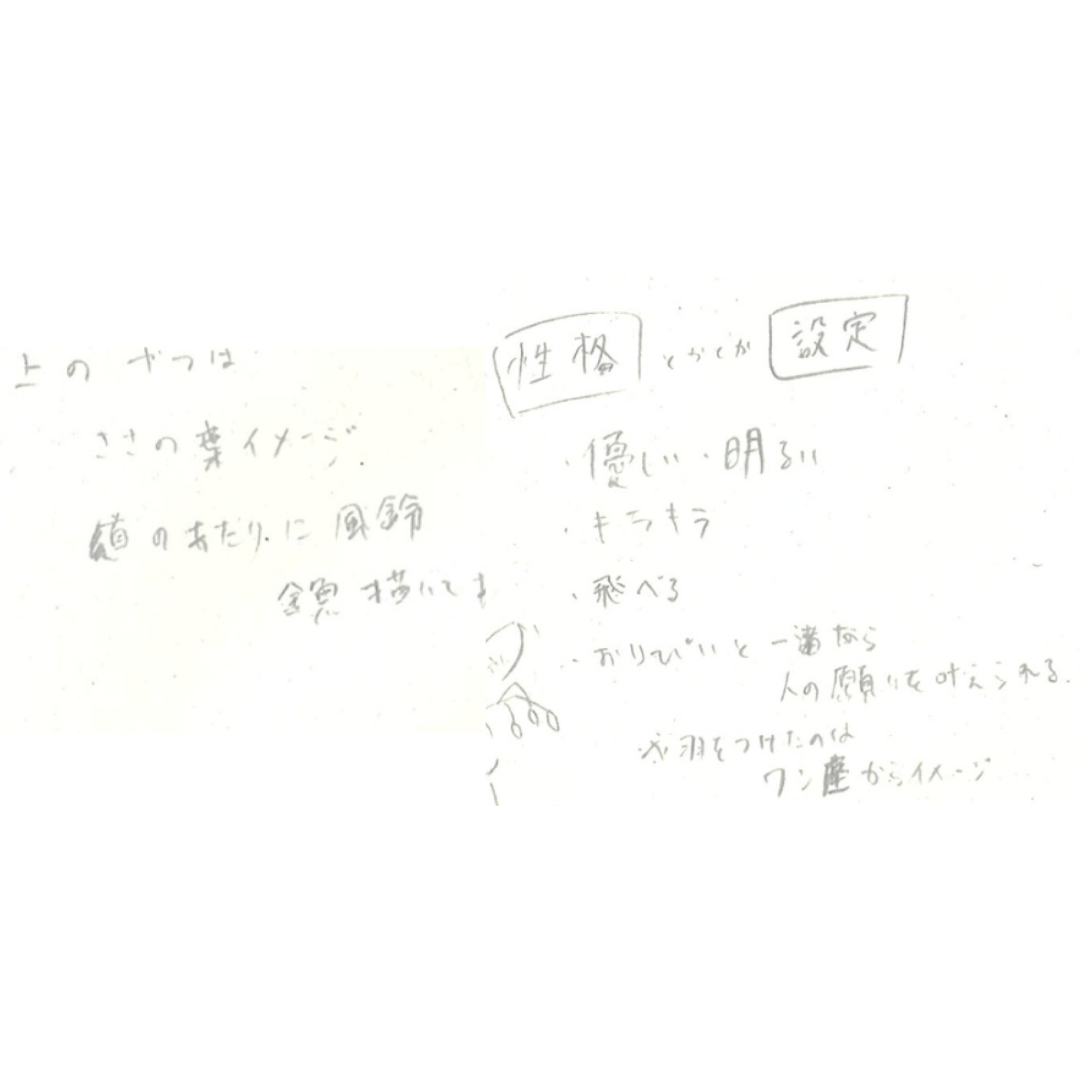 上のやつは
ささの葉イメージ
のあたりに風鈴
描いてま
性格 とかとか 設定
・優しい・明るい
・キラキラ
・飛べる
・おりぴいと一緒なら
人の願いを叶えられる.
※羽をつけたのは
ワシ座からイメージ